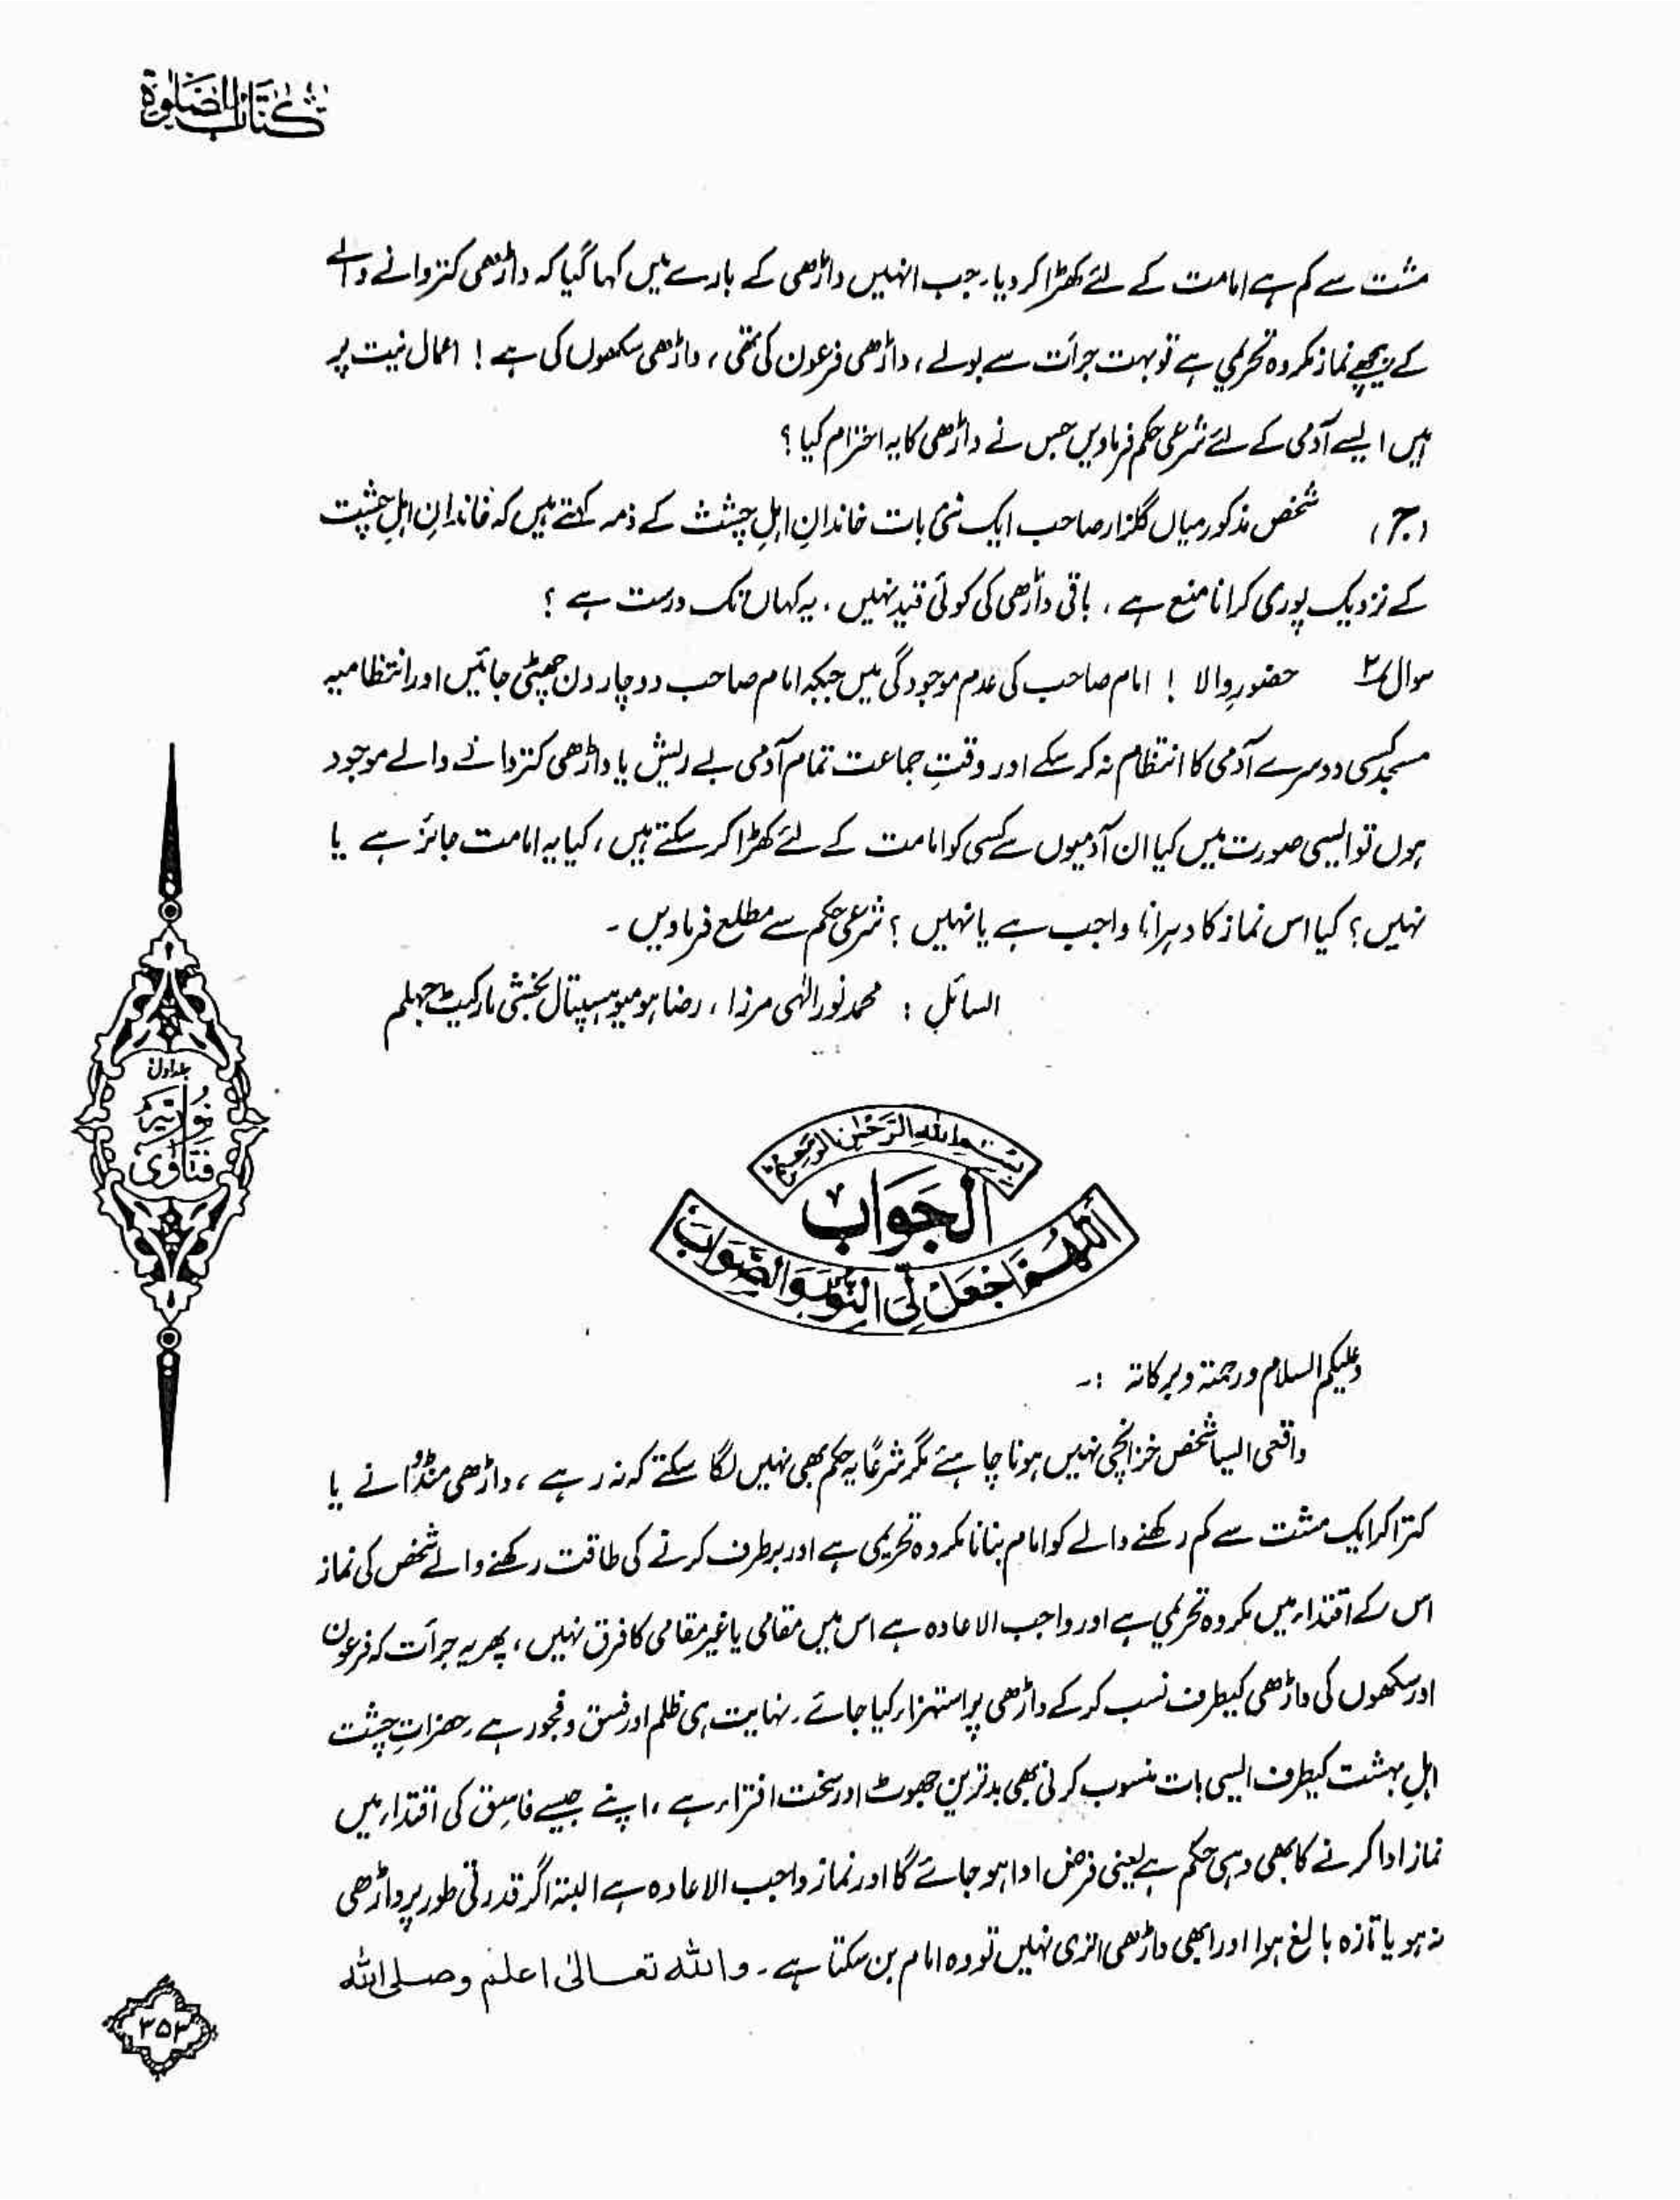 كتاب الصلوٰة
مشت سے کم ہے امامت کے لئے کھڑا کر دیا۔ جب انہیں داڑھی کے بارے میں کہا گیا کہ داڑھی کتروانے والے
کے پیچھے نماز مکروہ تحریمی ہے تو بہت جرأت سے بولے، داڑھی فرعون کی تھی، داڑھی سکھوں کی ہے! اعمال نیت پر
ہیں ایسے آدمی کے لئے شرعی حکم فرماویں جس نے داڑھی کا یہ احترام کیا؟
(ج) شخص مذکور میاں گلزار صاحب ایک نئی بات خاندانِ اہلِ چشت کے ذمہ کہتے ہیں کہ خاندانِ اہلِ چشت
کے نزدیک پوری کرانا منع ہے، باقی داڑھی کی کوئی قید نہیں، یہ کہاں تک درست ہے؟
سوال ۳ حضورِ والا! امام صاحب کی عدم موجودگی میں جبکہ امام صاحب دو چار دن چھٹی جائیں اور انتظامیہ
مسجد کسی دوسرے آدمی کا انتظام نہ کر سکے اور وقتِ جماعت تمام آدمی بے ریش یا داڑھی کتروانے والے موجود
ہوں تو ایسی صورت میں کیا ان آدمیوں سے کسی کو امامت کے لئے کھڑا کر سکتے ہیں، کیا یہ امامت جائز ہے یا
نہیں؟ کیا اس نماز کا دہرانا واجب ہے یا نہیں؟ شرعی حکم سے مطلع فرماویں۔
السائل: محمد نور الٰہی مرزا، رضا ہومیو ہسپتال بخشی مارکیٹ جہلم
بسم اللہ الرحمٰن الرحیم
الجواب
اللّٰهم اجعل لی النور والصواب
وعلیکم السلام ورحمتہ وبرکاتہ :۔
واقعی ایسا شخص خزانچی نہیں ہونا چاہئے مگر شرعًا یہ حکم بھی نہیں لگا سکتے کہ نہ رہے، داڑھی منڈوانے یا
کترا کر ایک مشت سے کم رکھنے والے کو امام بنانا مکروہ تحریمی ہے اور برطرف کرنے کی طاقت رکھنے والے شخص کی نماز
اس کے اقتداء میں مکروہ تحریمی ہے اور واجب الاعادہ ہے اس میں مقامی یا غیر مقامی کا فرق نہیں، پھر یہ جرأت کہ فرعون
اور سکھوں کی داڑھی کیطرف نسب کر کے داڑھی پر استہزاء کیا جائے۔ نہایت ہی ظلم اور فسق و فجور ہے۔ حضراتِ چشت
اہلِ بہشت کیطرف ایسی بات منسوب کرنی بھی بدترین جھوٹ اور سخت افتراء ہے، اپنے جیسے فاسق کی اقتداء میں
نماز ادا کرنے کا بھی وہی حکم ہے یعنی فرض ادا ہو جائے گا اور نماز واجب الاعادہ ہے البتہ اگر قدرتی طور پر داڑھی
نہ ہو یا تازہ بالغ ہوا اور ابھی داڑھی اتری نہیں تو وہ امام بن سکتا ہے۔ واللہ تعالیٰ اعلم وصلی اللہ
جلد اول
نوریہ
فتاویٰ
۳۵۳